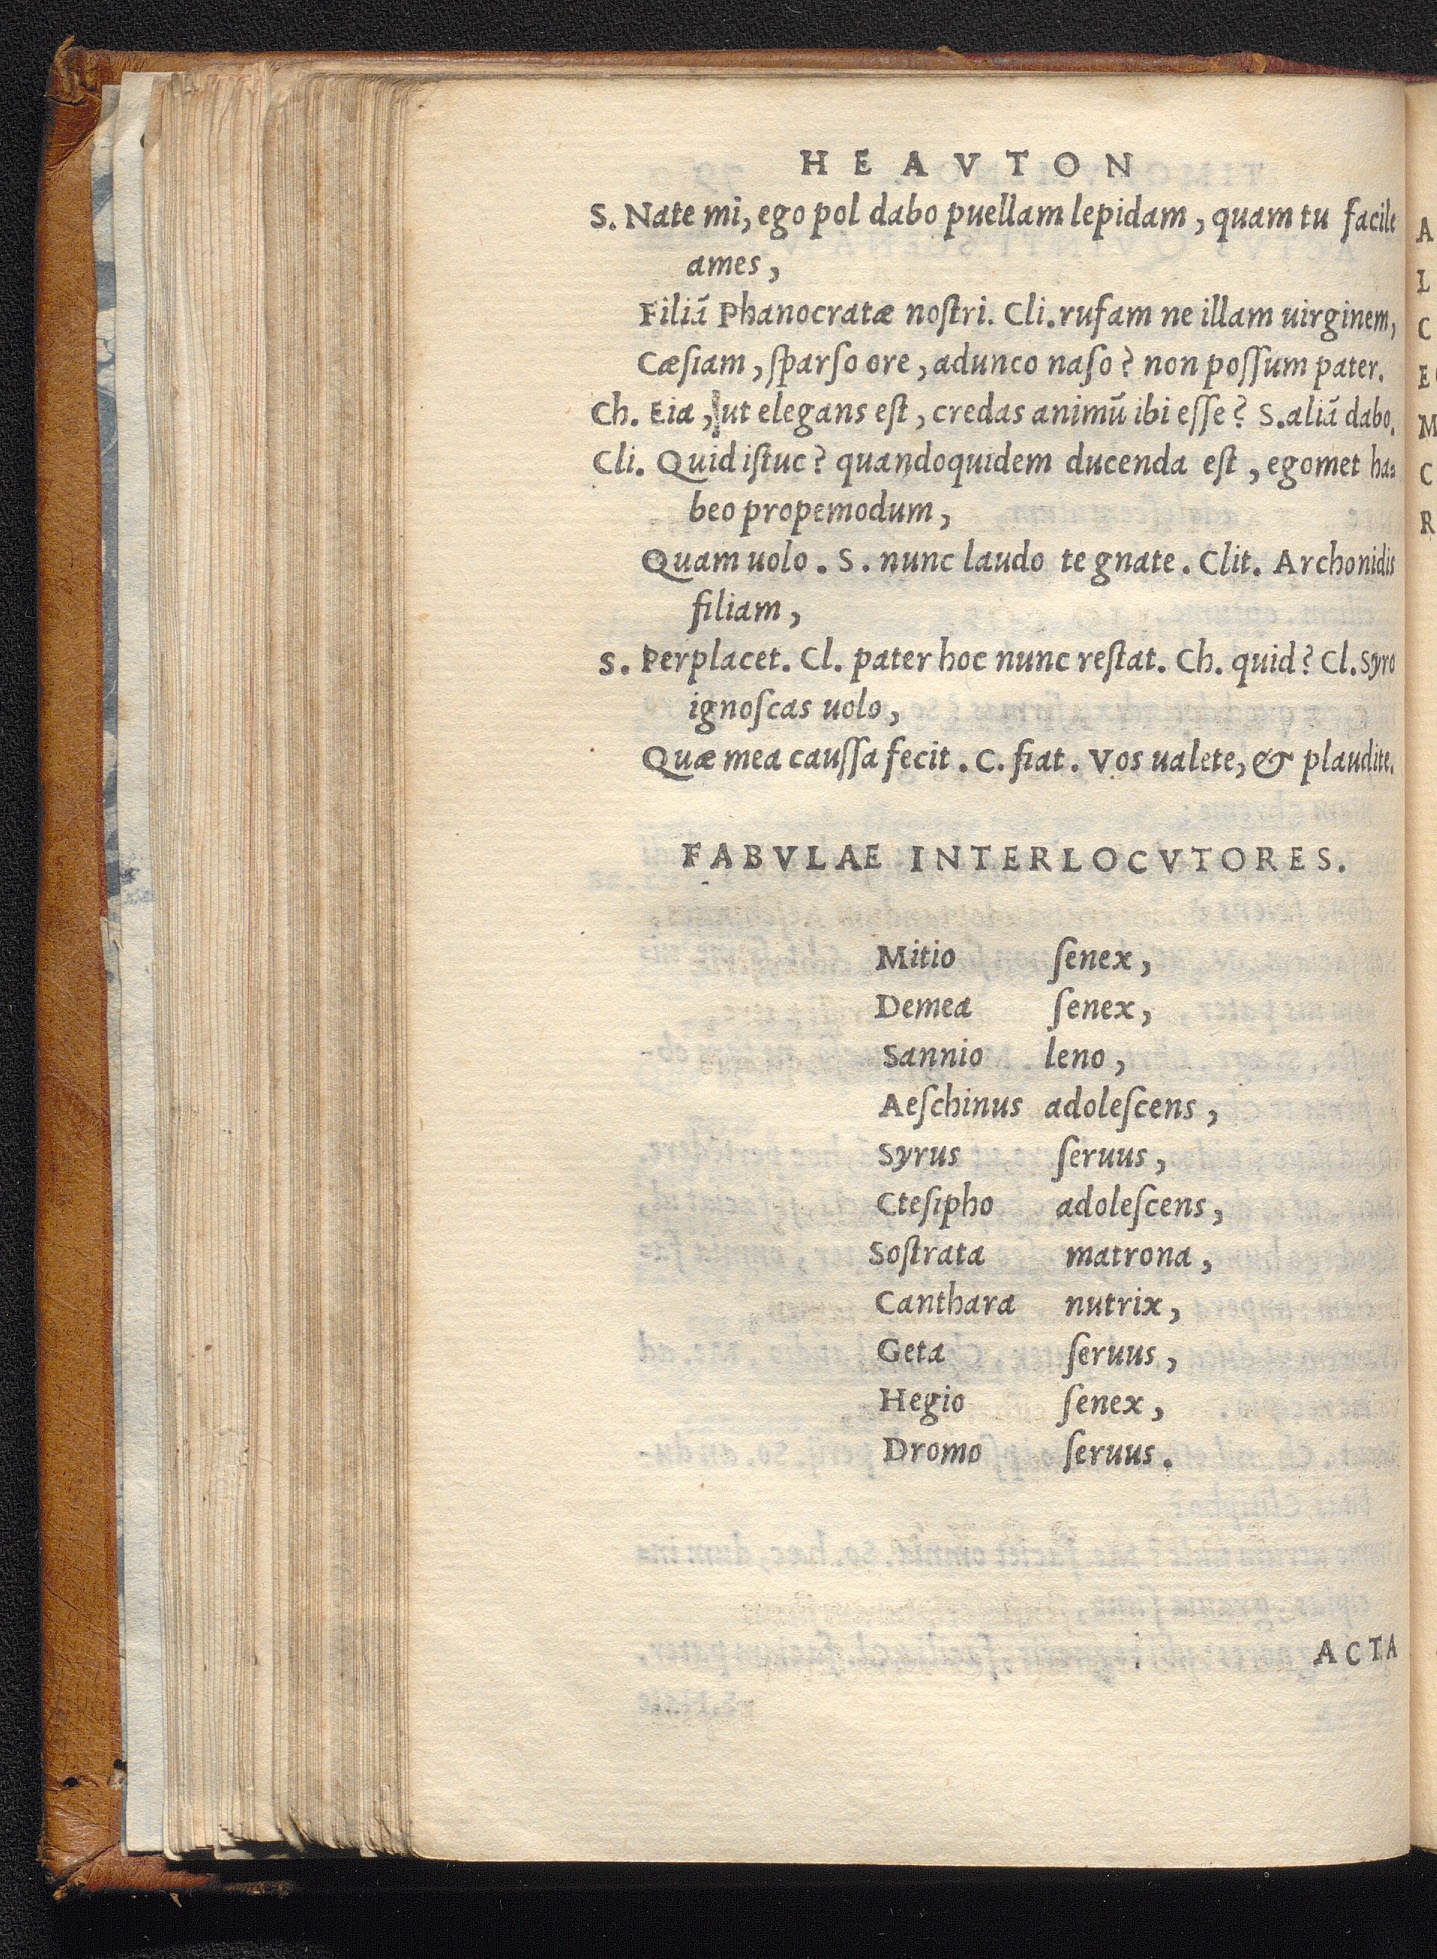 HEAVTON
S. Nate mi, ego pol dabo puellam lepidam, quam tu facile
ames,
Filiā Phanocratæ noſtri. Cli. rufam ne illam uirginem,
Cæſiam, ſparſo ore, adunco naſo? non poſſum pater.
Ch. Eia, ut elegans eſt, credas animū ibi eſſe? S. aliā dabo.
Cli. Quid iſtuc? quandoquidem ducenda eſt, egomet ha=
beo propemodum,
Quam uolo. S. nunc laudo te gnate. Clit. Archonidis
filiam,
S. Perplacet. Cl. pater hoc nunc reſtat. Ch. quid? Cl. Syro
ignoſcas uolo,
Quæ mea cauſſa fecit. C. fiat. Vos ualete, & plaudite.
FABVLAE INTERLOCVTORES.
Mitio ſenex,
Demea ſenex,
Sannio leno,
Aeſchinus adoleſcens,
Syrus ſeruus,
Cteſipho adoleſcens,
Soſtrata matrona,
Canthara nutrix,
Geta ſeruus,
Hegio ſenex,
Dromo ſeruus.
ACTA
A
L
C
E
M
C
R